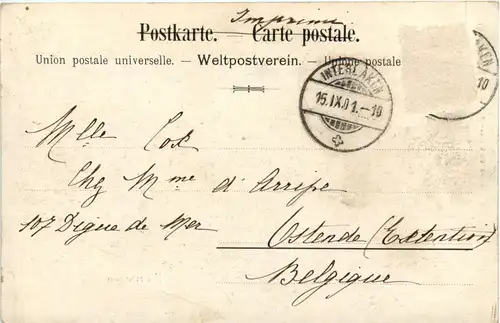 Imprimé
Postkarte. — Carte postale.
Union postale universelle. — Weltpostverein. — Unione postale
INTERLAKEN
15.IX.01.–10
10
Mlle Cox
Chg Mme d'Arripe
107 Digue de Mer
Ostende (Extention)
Belgique